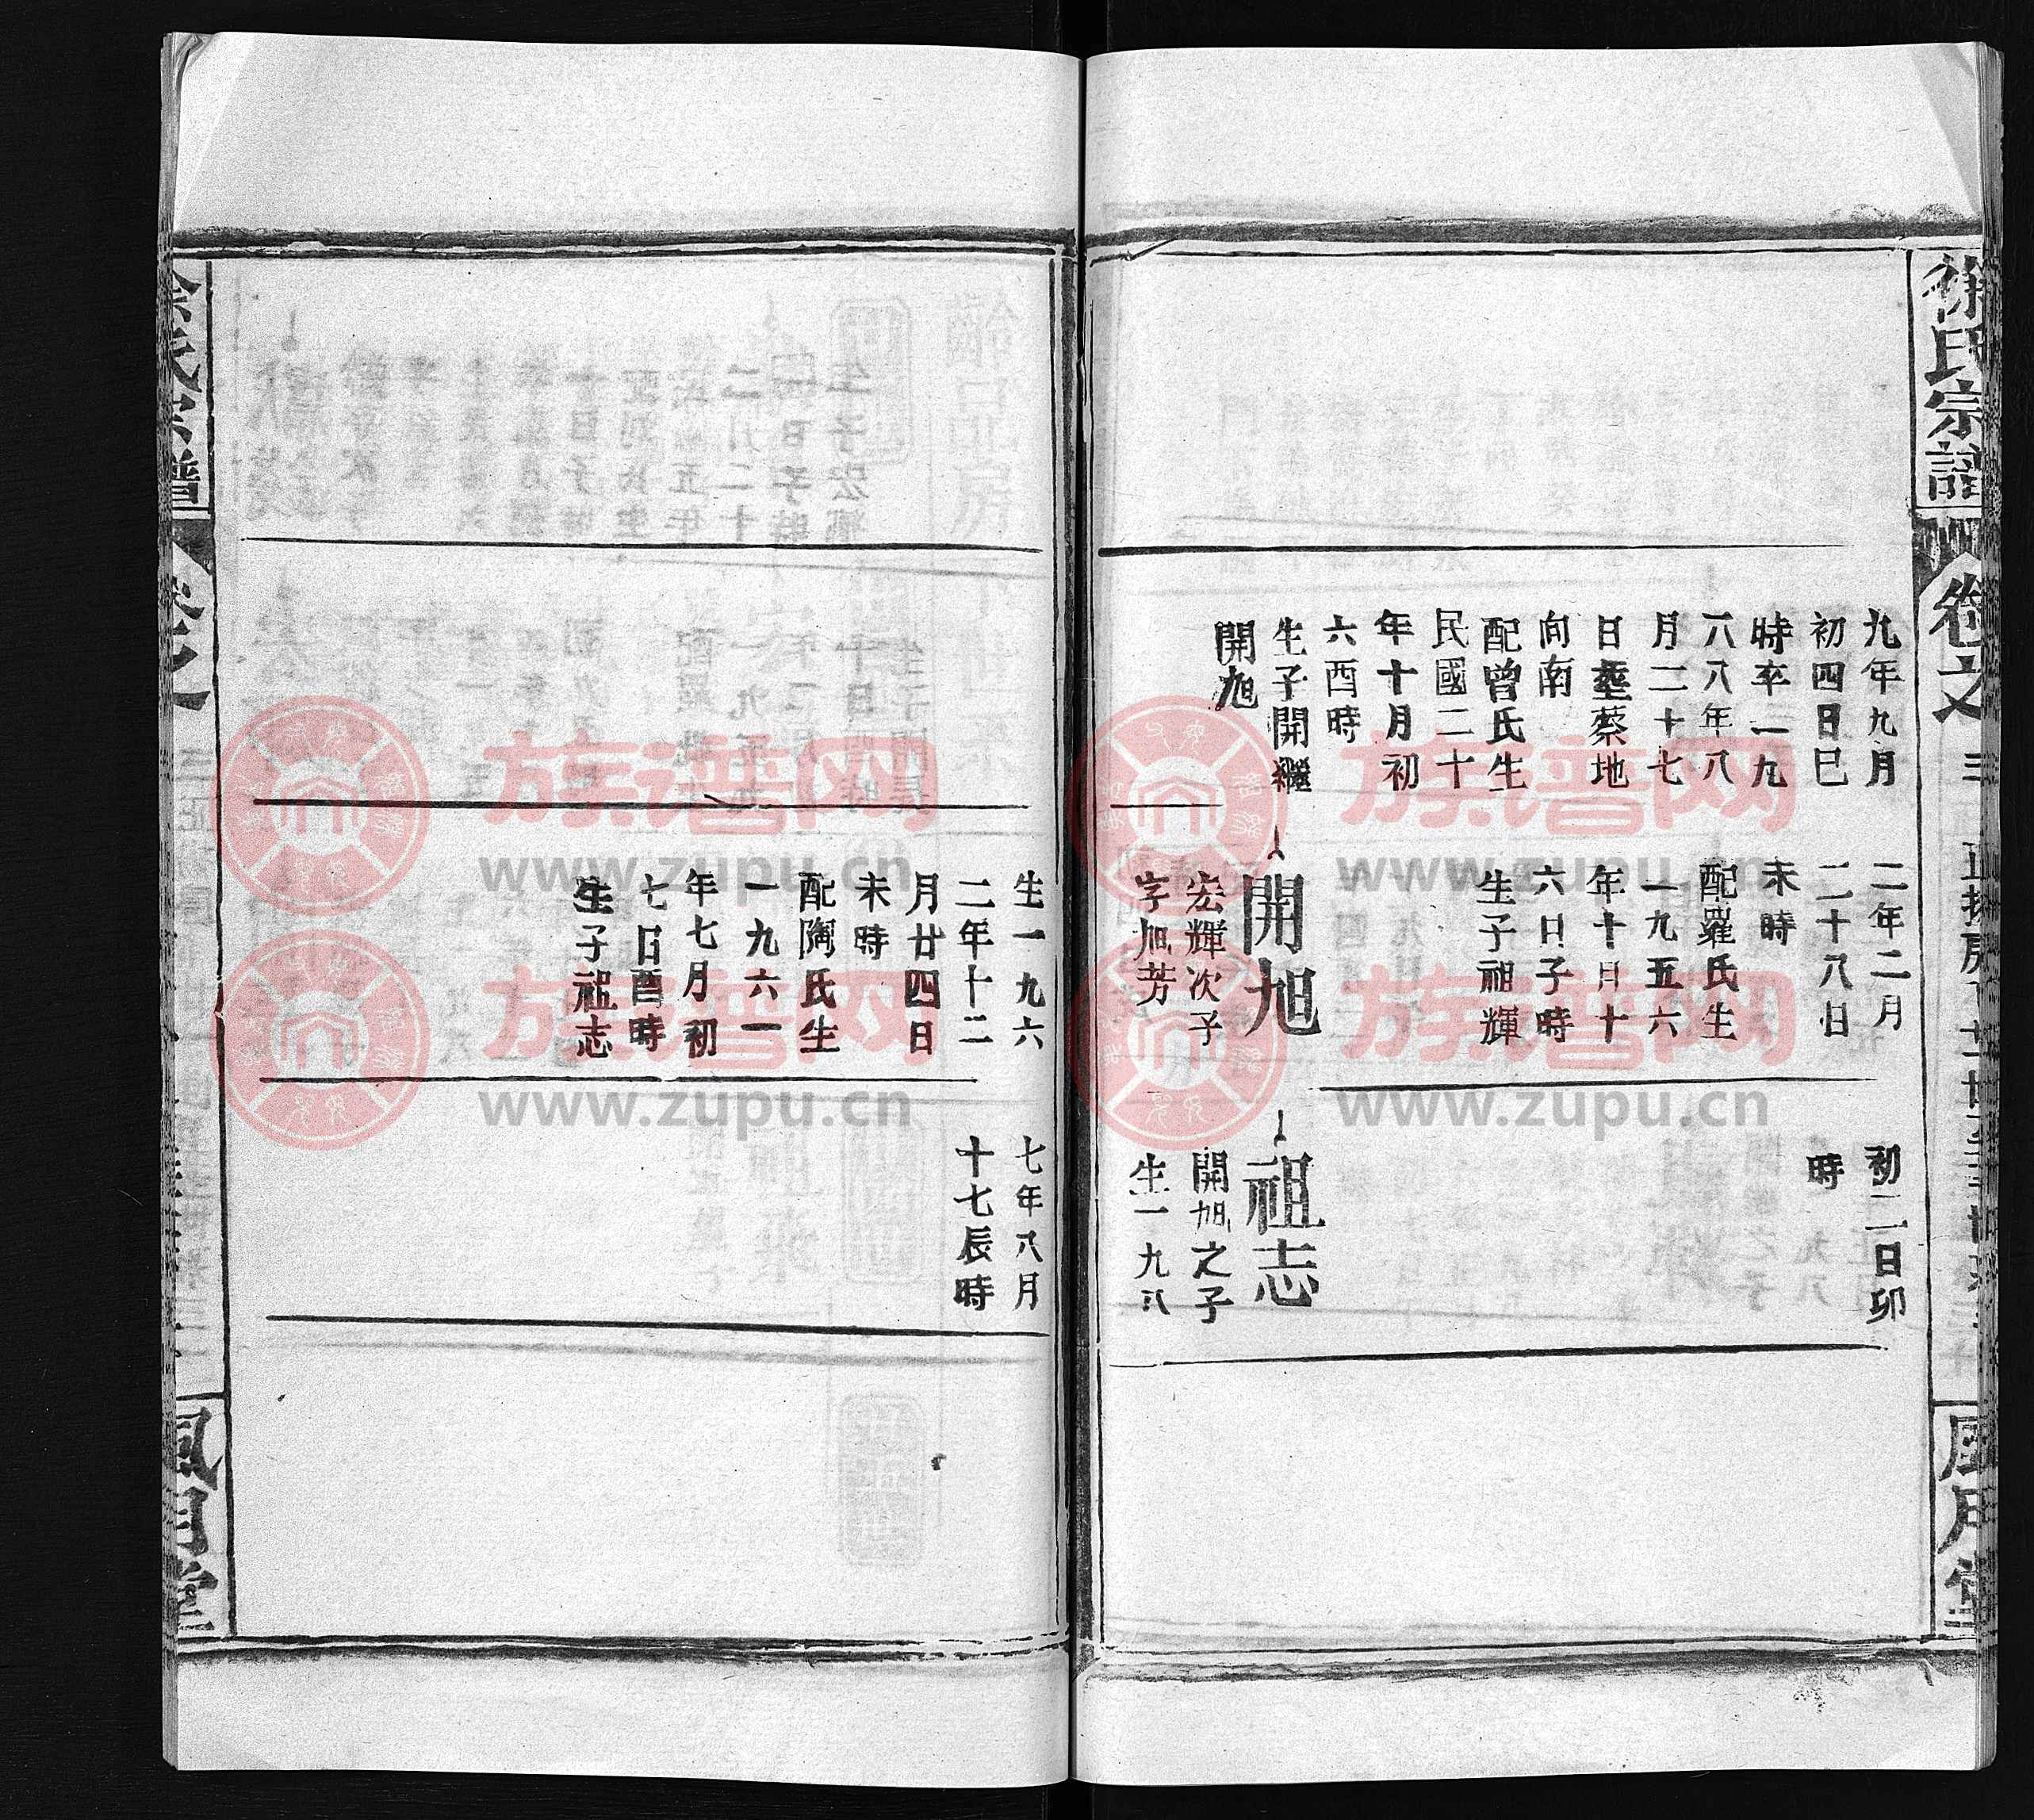 徐氏宗譜
卷之三
九年九月
初四日巳
時卒一九
八八年八
月二十七
日塟蔡地
向南
配曾氏生
民國二十
年十月初
六酉時
生子開繼
開旭
二年二月
二十八日
未時
配羅氏生
一九五六
年十日十
六日子時
生子祖輝
開旭
宏輝次子
字旭芳
初二日卯
時
祖志
開旭之子
生一九八
生一九六
二年十二
月廿四日
未時
配陶氏生
一九六一
年七月初
七日酉時
生子祖志
七年八月
十七辰時
族谱网
www.zupu.cn
族谱网
www.zupu.cn
族谱网
www.zupu.cn
族谱网
www.zupu.cn